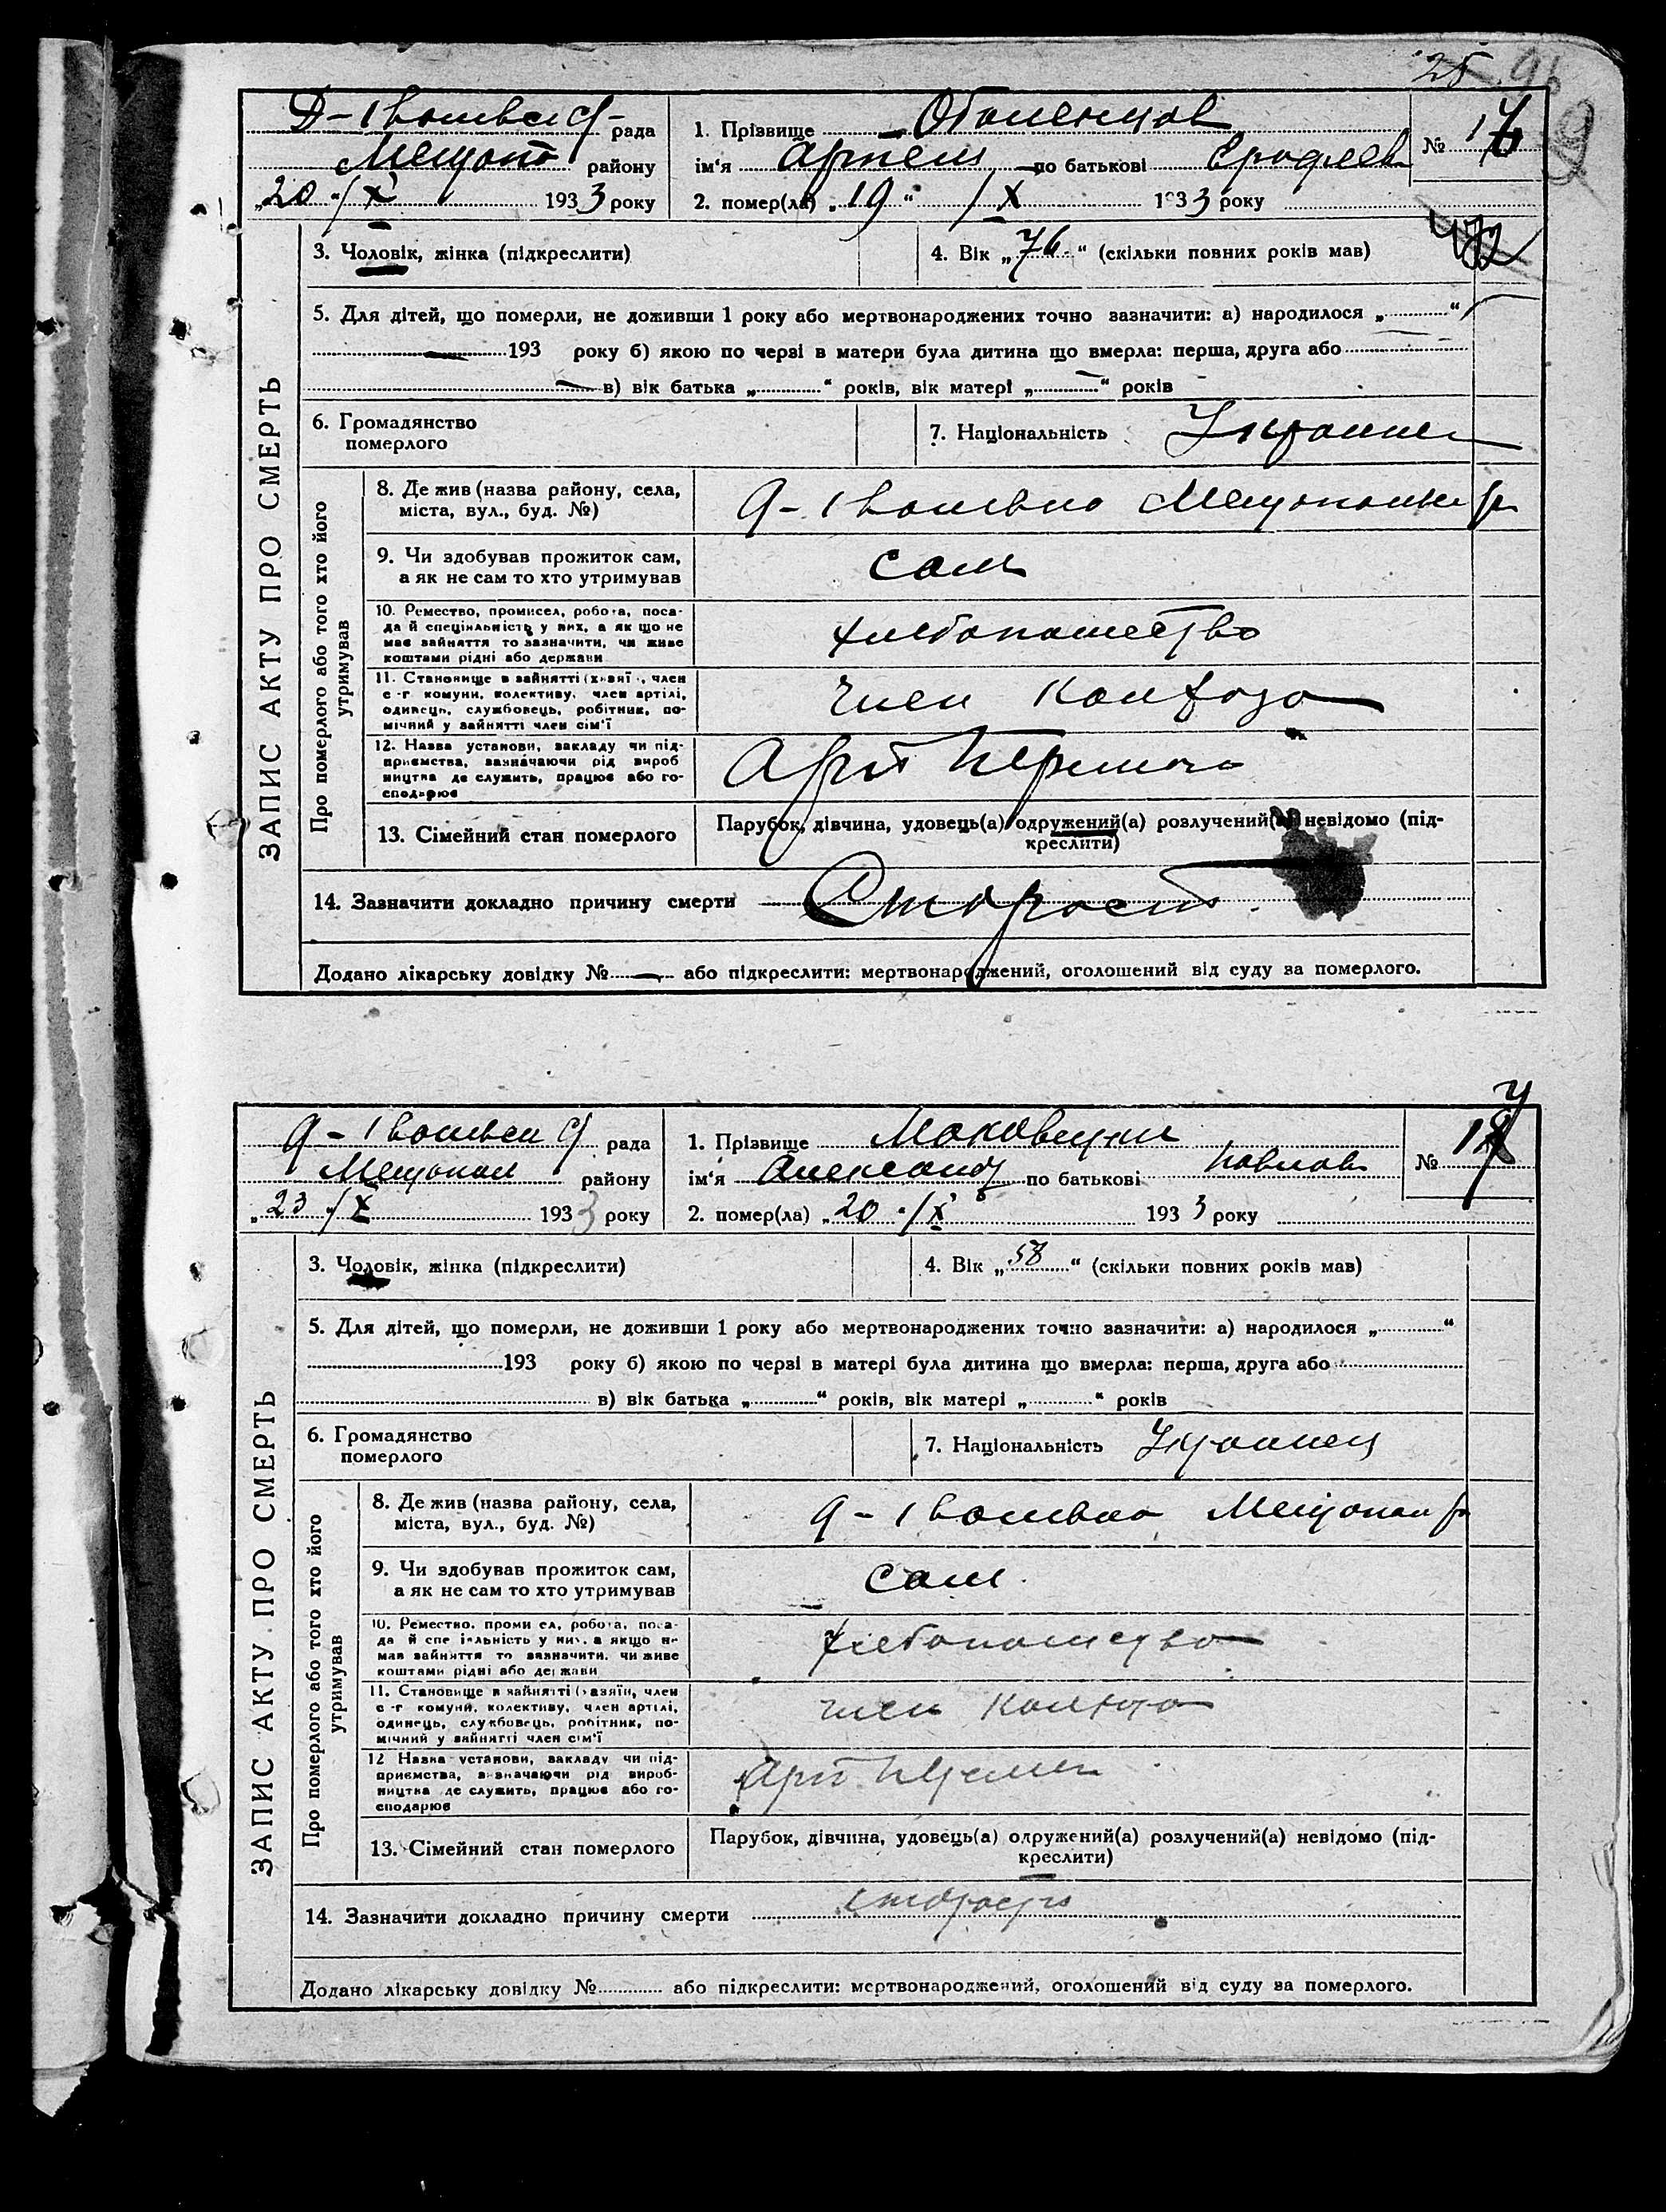 25 96
Д-Івановська с/ рада
району
„20“ /X 1933 року
1. Прізвище Оболенцов
ім‘я Артем по батькові Ерофеев
2. помер(ла) „19“ /X 1933 року
№ 16
472
ЗАПИС АКТУ ПРО СМЕРТЬ
3. Чоловік, жінка (підкреслити)
4. Вік „76“ (скільки повних років мав)
5. Для дітей, що померли, не доживши 1 року або мертвонароджених точно зазначити: а) народилося „ “
193 року б) якою по черзі в матери була дитина що вмерла: перша, друга або
в) вік батька „ “ років, вік матері „ “ років
6. Громадянство
померлого
7. Національність Украинец
Про померлого або того хто його
утримував
8. Де жив (назва району, села,
міста, вул., буд. №)
9. Чи здобував прожиток сам,
а як не сам то хто утримував
сам
10. Ремество, промисел, робота, поса-
да й спеціяльність у них, а як що не
має зайняття то зазначити, чи живе
коштами рідні або держави
хлебопашество
11. Становище в зайнятті (хазяїн, член
с-г комуни, колективу, член артілі,
одинець, службовець, робітник, по-
мічний у зайнятті член сім‘ї
член колхоза
12. Назва установи, закладу чи під-
приємства, зазначаючи рід вироб
ництва де служить, працює або го-
сподарює
Арт
13. Сімейний стан померлого
Парубок, дівчина, удовець(а) одружений(а) розлучений(а) невідомо (під-
креслити)
14. Зазначити докладно причину смерти Старость
Додано лікарську довідку № — або підкреслити: мертвонароджений, оголошений від суду за померлого.
рада
району
„23“ /X 1933 року
1. Прізвище Маковецки
ім‘я Александ по батькові Павлов
2. помер(ла) „20“ /X 1933 року
№ 17
ЗАПИС АКТУ ПРО СМЕРТЬ
3. Чоловік, жінка (підкреслити)
4. Вік „58“ (скільки повних років мав)
5. Для дітей, що померли, не доживши 1 року або мертвонароджених точно зазначити: а) народилося „ “
193 року б) якою по черзі в матері була дитина що вмерла: перша, друга або
в) вік батька „ “ років, вік матері „ “ років
6. Громадянство
померлого
7. Національність Украинец
Про померлого або того хто його
утримував
8. Де жив (назва району, села,
міста, вул., буд. №)
9. Чи здобував прожиток сам,
а як не сам то хто утримував
сам
10. Ремество, промисел, робота, поса-
да й спеціяльність у них, а якщо не
має зайняття то зазначити, чи живе
коштами рідні або держави
хлебопашество
11. Становище в зайнятті (хазяїн, член
с-г комуни, колективу, член артілі,
одинець, службовець, робітник, по-
мічний у зайнятті член сім‘ї
член колхоза
12 Назва установи, закладу чи під-
приємства, зазначаючи рід вироб-
ництва де служить, працює або го-
сподарює
Арт
13. Сімейний стан померлого
Парубок, дівчина, удовець(а) одружений(а) розлучений(а) невідомо (під-
креслити)
14. Зазначити докладно причину смерти старость
Додано лікарську довідку № або підкреслити: мертвонароджений, оголошений від суду за померлого.